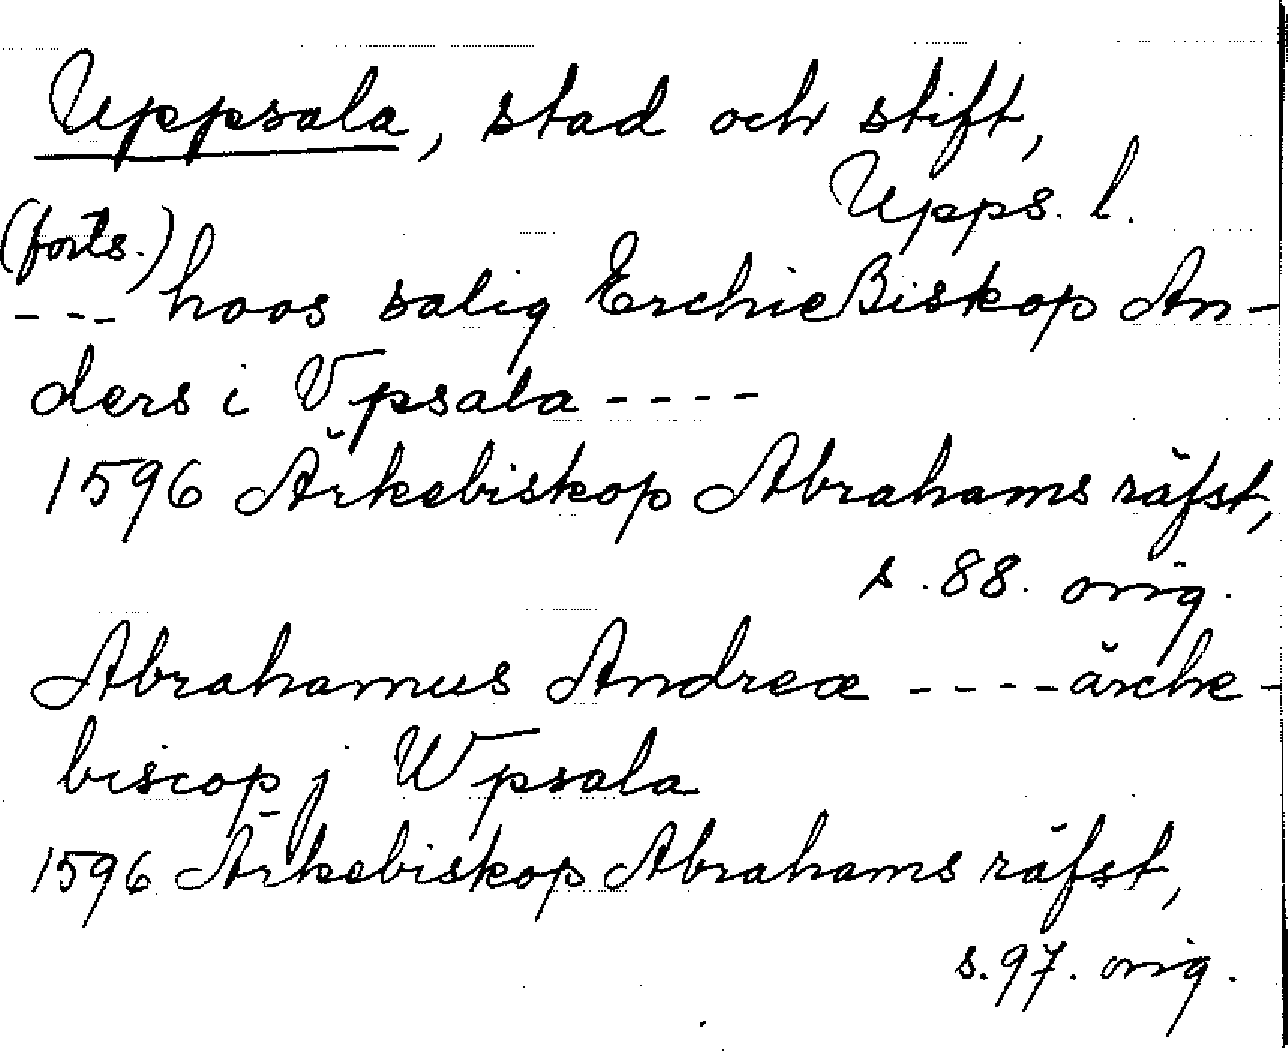 Uppsala, stad och stift,
Upps. l.
(forts.)
--- hoos salig ErchieBiskop An-
ders i Vpsala ----
1596 Ärkebiskop Abrahams räfst,
s. 88. orig.
Abrahamus Andreæ ---- ärche-
biscop j Wpsala
1596 Ärkebiskop Abrahams räfst,
s. 97. orig.